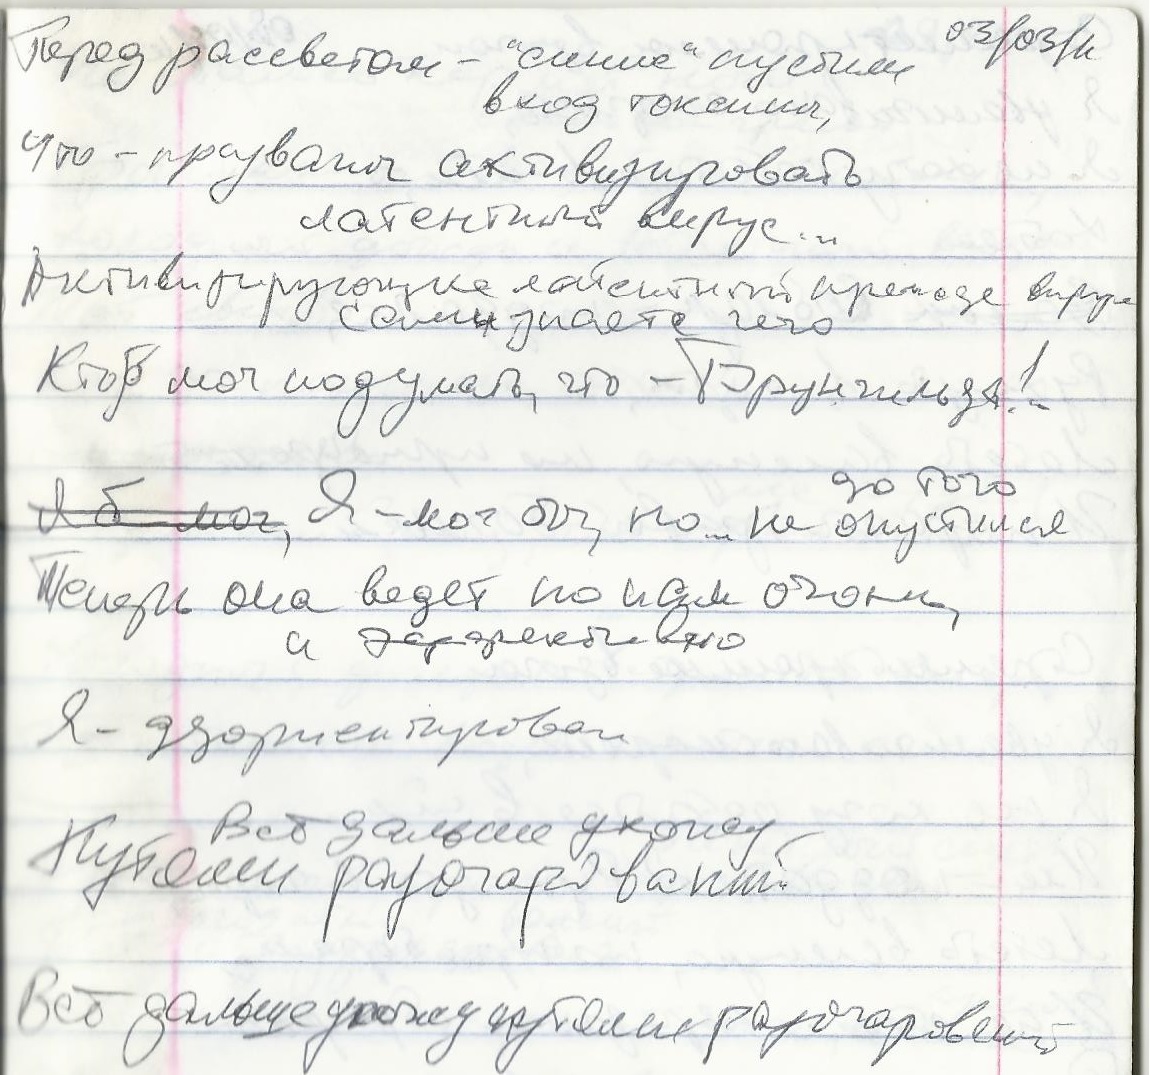 03/03/11
Перед рассветом – "синие" пустили
в ход токсины,
Что – призваны активизировать
латентный вирус...
Активизирующие латентный прежде вирус
сами знаете чего
Кто б мог подумать, что – Брунгильда!..
Я б мог, Я – мог бы, но... не опустился
до того
Теперь она ведет по нам огонь,
и эффективно
Я – дезориентирован
Всё дальше ухожу
Путями разочарований
Всё дальше ухожу путями разочарований